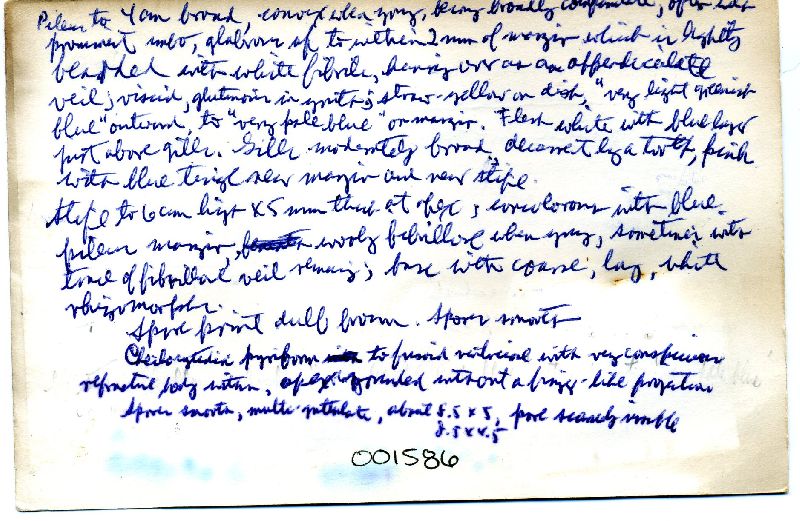 Pileus to 4 cm broad, convex when young, being broadly campanulate, often with
prominent umbo, glabrous up to within 2 mm of margin which is lightly
bearded with white fibrils, having over as an appendiculate
veil; viscid, glutinous in youth; straw-yellow on disk, "very light greenish
blue" outward, to "very pale blue" on margin. Flesh white with blue layer
just above gills. Gills moderately broad, decurrent by a tooth, pink
with blue tinge near margin and near stipe.
Stipe to 6 cm high x 5 mm thick at apex; concolorous with blue
pileus margin, wooly fibrillose when young, sometimes with
zone of fibrillose veil remains; base with coarse, long, white
rhizomorphs.
Spore print dull brown. Spores smooth
Cheilocystidia pyriform to fusoid ventricose with very conspicuous
refractive body within, apex rounded without a finger-like projection
Spores smooth, multi-guttulate, about 8.5 x 5, pore scarcely visible
8.5 x 4.5
001586